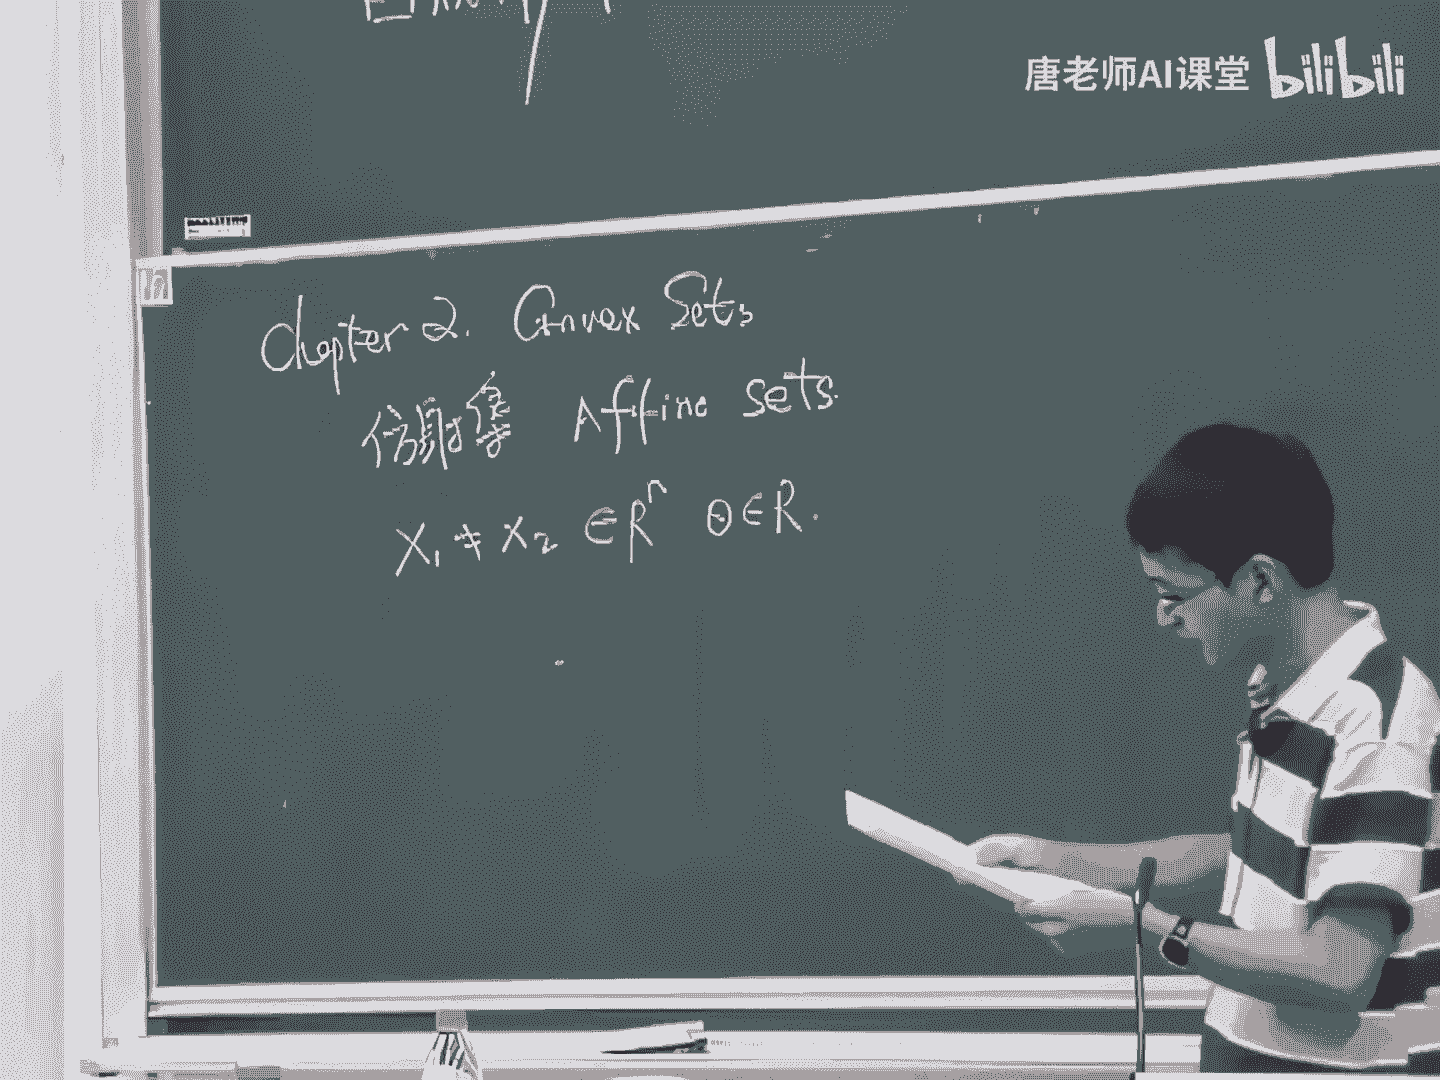 唐老师AI课堂 bilibili
Chapter 2. Convex Sets
仿射集 Affine sets.
X₁ ≠ X₂ ∈ Rⁿ θ ∈ R.